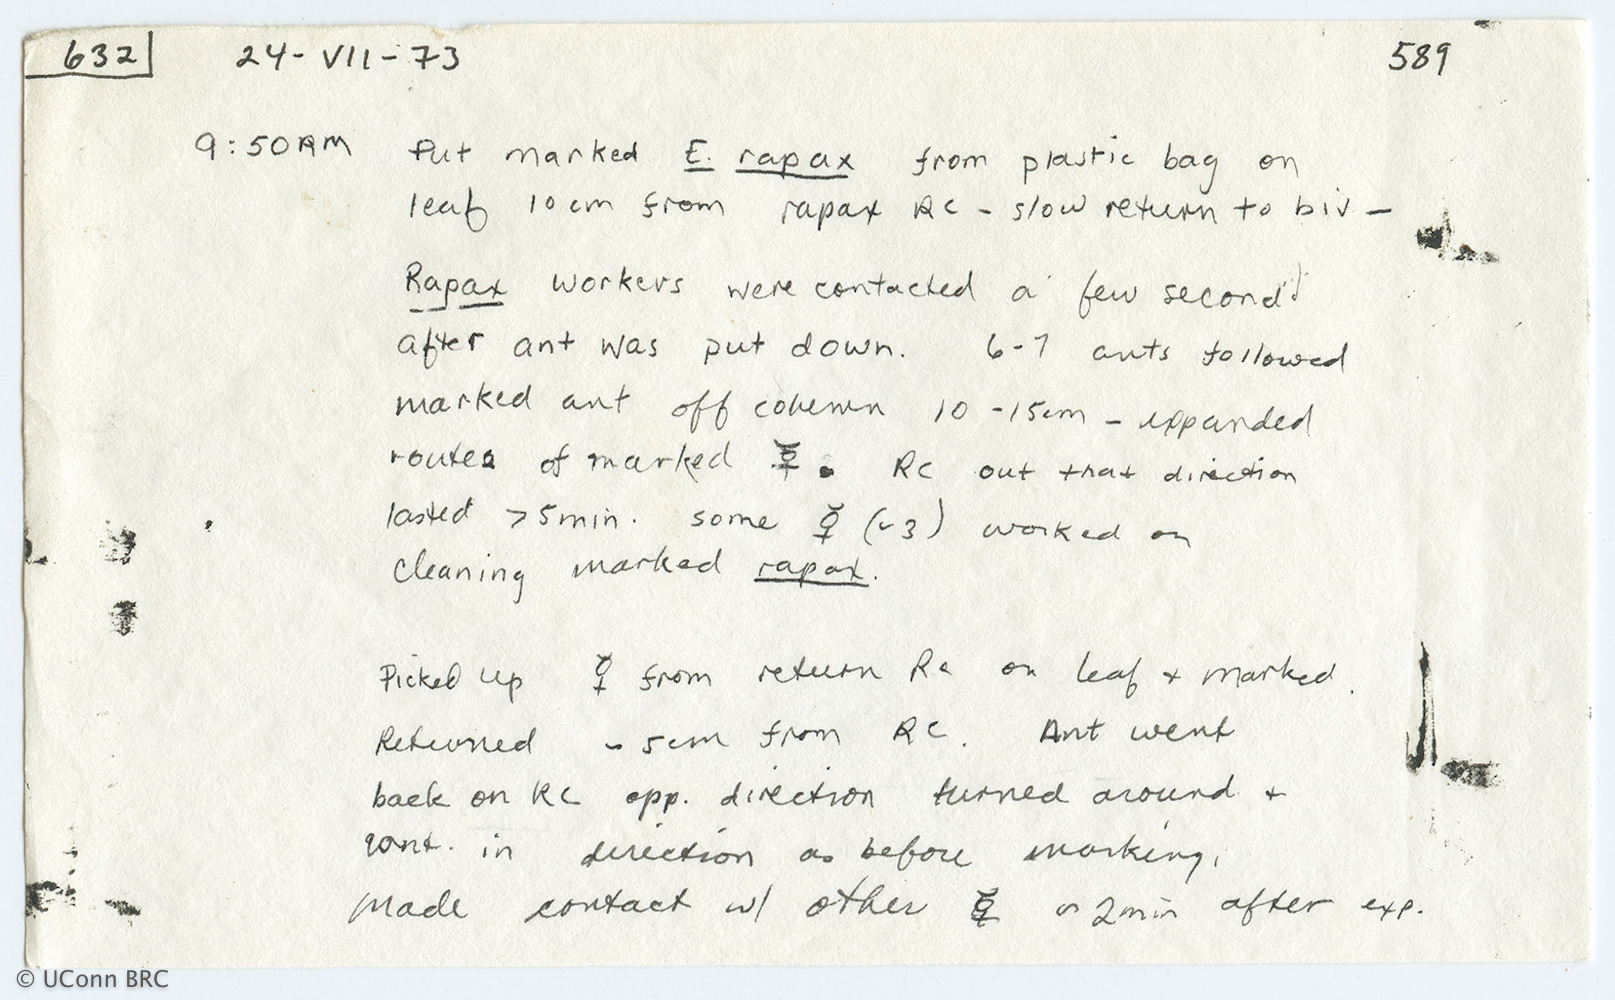 632 24-VII-73 589
9:50AM Put marked E. rapax from plastic bag on
leaf 10cm from rapax RC - slow return to biv -
Rapax workers were contacted a few seconds
after ant was put down. 6-7 ants followed
marked ant off column 10-15cm - expanded
routes of marked ☿. RC out that direction
lasted >5min. some ☿ (~3) worked on
cleaning marked rapax.
Picked up ☿ from return RC on leaf + marked.
Returned ~5cm from RC. Ant went
back on RC opp. direction turned around +
cont. in direction as before marking.
Made contact w/ other ☿ ~2min after exp.
© UConn BRC